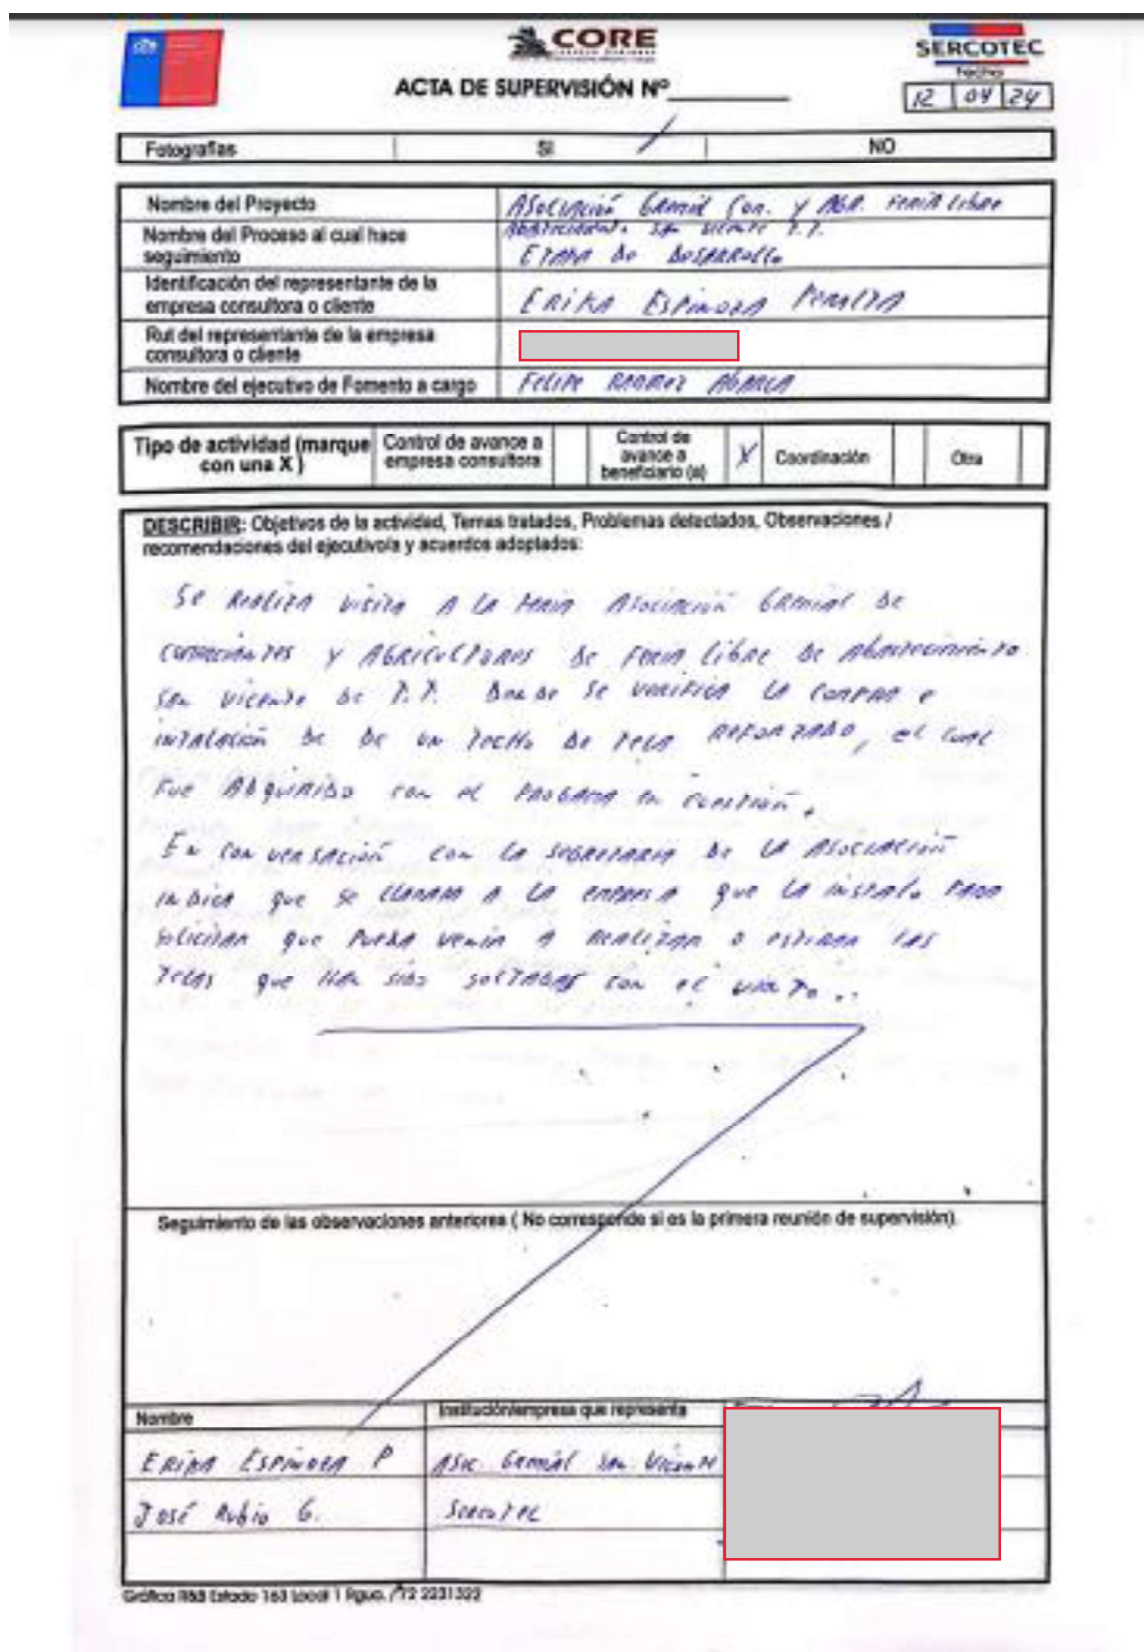 CORE
SERCOTEC
Fecha
ACTA DE SUPERVISIÓN Nº
12 04 24
Fotografías SI / NO
Nombre del Proyecto Asociación Gremial Com. y Agr. Feria Libre
Abastecimiento San Vicente T.T.
Nombre del Proceso al cual hace seguimiento Etapa de Desarrollo
Identificación del representante de la empresa consultora o cliente Erika Espinoza Peralta
Rut del representante de la empresa consultora o cliente
Nombre del ejecutivo de Fomento a cargo Felipe Ramirez Abarca
Tipo de actividad (marque con una X ) Control de avance a empresa consultora Control de avance a beneficiario (a) X Coordinación Otra
DESCRIBIR: Objetivos de la actividad, Temas tratados, Problemas detectados, Observaciones /
recomendaciones del ejecutivo/a y acuerdos adoptados:
Se realiza visita a la Asociación Gremial de
comerciantes y Agricultores de feria libre de Abastecimiento
San Vicente de T.T. Donde se verifica la compra e
intalación de de un techo de tela reforzado, el cual
fue adquirido con el programa en cuestión.
En conversación con la segretaria de la Asociación
indica que se llamara a la empresa que la instalo para
solicitar que pueda venir a realizar o estirar las
telas que han sido soltadas con el viento..
Seguimiento de las observaciones anteriores ( No corresponde si es la primera reunión de supervisión).
Nombre Institución/empresa que representa
Erika Espinoza P Asoc. Gremial San Vicente
José Rubio G. Sercotec
Gráfica R&B Estado 163 Local 1 Rgua. /72 2231322